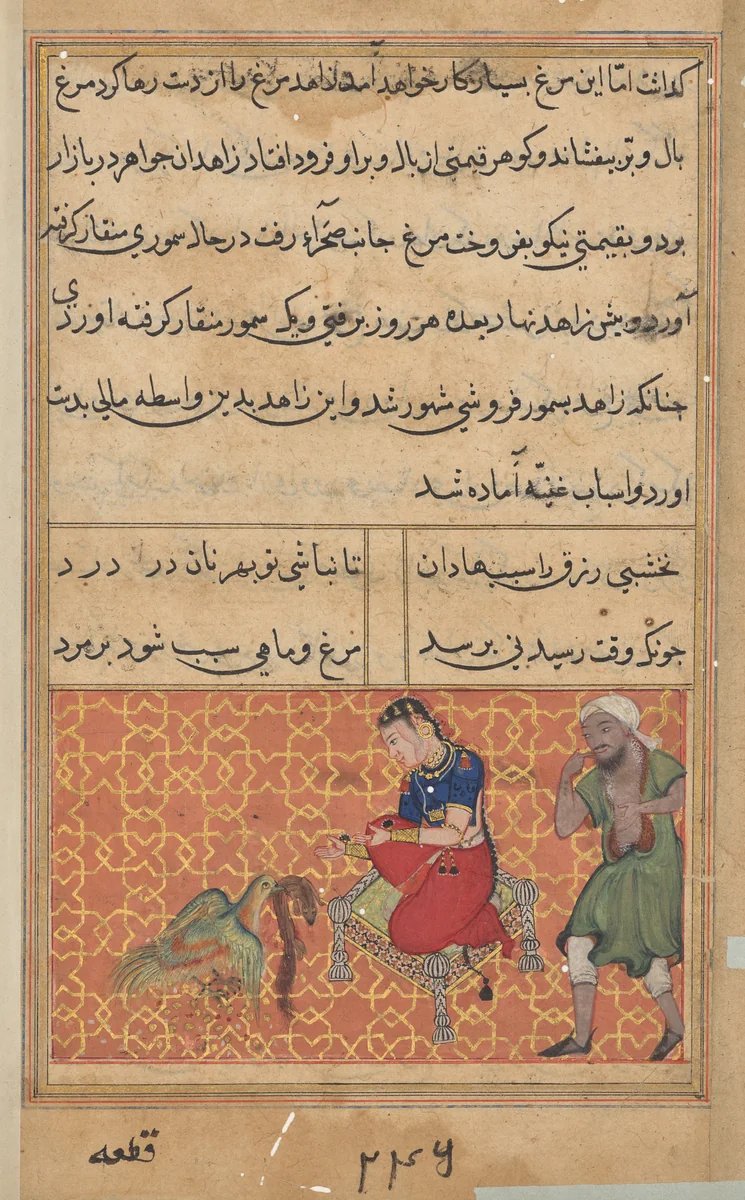 گذاشت امّا این مرغ بسیار کار خواهد آمد زاهد مرغ را از دست رها کرد مرغ
بال و بّر بیفشاند و کوهر قیمتی از بال و بر او فرود افتاد زاهد ان جواهر در بازار
برد و بقیمتي نیکو بفروخت مرغ جانب صحرآء رفت در حال سموري منقار کرفته
آورد و پیش زاهد نهاد بعده هر روز برفتي و یک سمور منقار کرفته اوردی
جنانکه زاهد بسمور فروشي مشهور شد و این زاهد بدین واسطه مالي بدست
اورد و اسباب غنیّه آماده شد
نخشبي رزق را سببها دان تا نباشي تو بهر نان در درد
جونکه وقت رسیدني برسد مرغ و ماهي سبب شود بر مرد
قطعه
۲۲۶